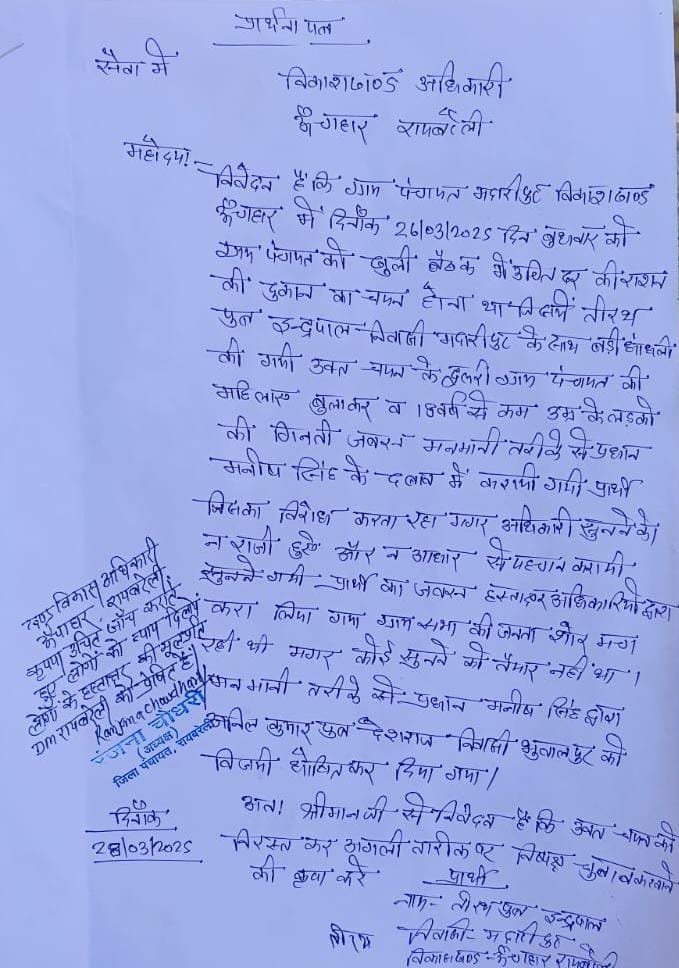 प्रार्थना पत्र
सेवा में
विकाशखण्ड अधिकारी
ऊँचाहार रायबरेली
महोदय!-
निवेदन है कि ग्राम पंचायत मदारीपुर विकाशखण्ड
ऊँचाहार में दिनाँक 26/03/2025 दिन बुधवार को
ग्राम पंचायत की खुली बैठक में उचित दर की राशन
की दुकान का चयन होना था जिसमें तीरथ
पुत्र इन्द्रपाल निवासी मदारीपुर के साथ बड़ी धांधली
की गयी उक्त चयन के दूसरी ग्राम पंचायत की
महिलाएं बुलाकर व 18 वर्ष से कम उम्र के लड़को
की गिनती जबरन मनमानी तरीके से प्रधान
मनीष सिंह के दबाव में करायी गयी प्रार्थी
जिसका विरोध करता रहा मगर अधिकारी सुनने को
न राजी हुए और न आधार से पहचान करायी
सुनने गयी प्रार्थी का जबरन हस्ताक्षर अधिकारियों द्वारा
करा लिया गया ग्राम सभा की जनता शोर मचा
रही थी मगर कोई सुनने को तैयार नहीं था।
मनमानी तरीके से प्रधान मनीष सिंह द्वारा
अनिल कुमार पुत्र देशराज निवासी भुवालपुर को
विजयी घोषित कर दिया गया।
अतः श्रीमान जी से निवेदन है कि उक्त चयन को
निरस्त कर अगली तारीक पर निष्पक्ष चुनाव करवाने
की कृपा करे
प्रार्थी
नाम- तीरथ पुत्र इन्द्रपाल
निवासी- मदारीपुर
विकाशखण्ड- ऊँचाहार रायबरेली
तीरथ
दिनाँक
28/03/2025
खण्ड विकास अधिकारी
ऊँचाहार, रायबरेली
कृपया उचित जाँच कराते
हुए लोगों को न्याय दिलायें
लोगों के हस्ताक्षर की मूलप्रति
DM रायबरेली को प्रेषित है।
Ranjana Chaudhary
रंजना चौधरी
(अध्यक्ष)
जिला पंचायत, रायबरेली